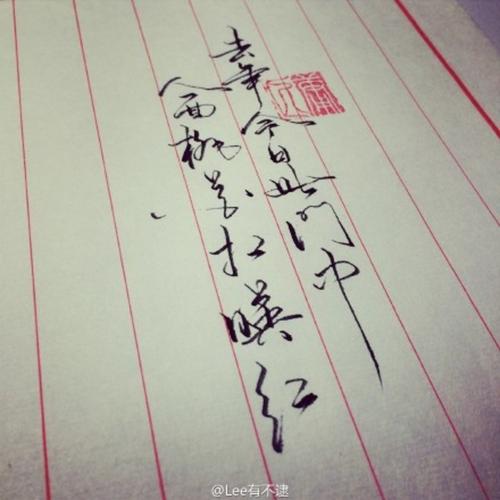 去年今日此門中
人面桃花相暎红
@Lee有不逮